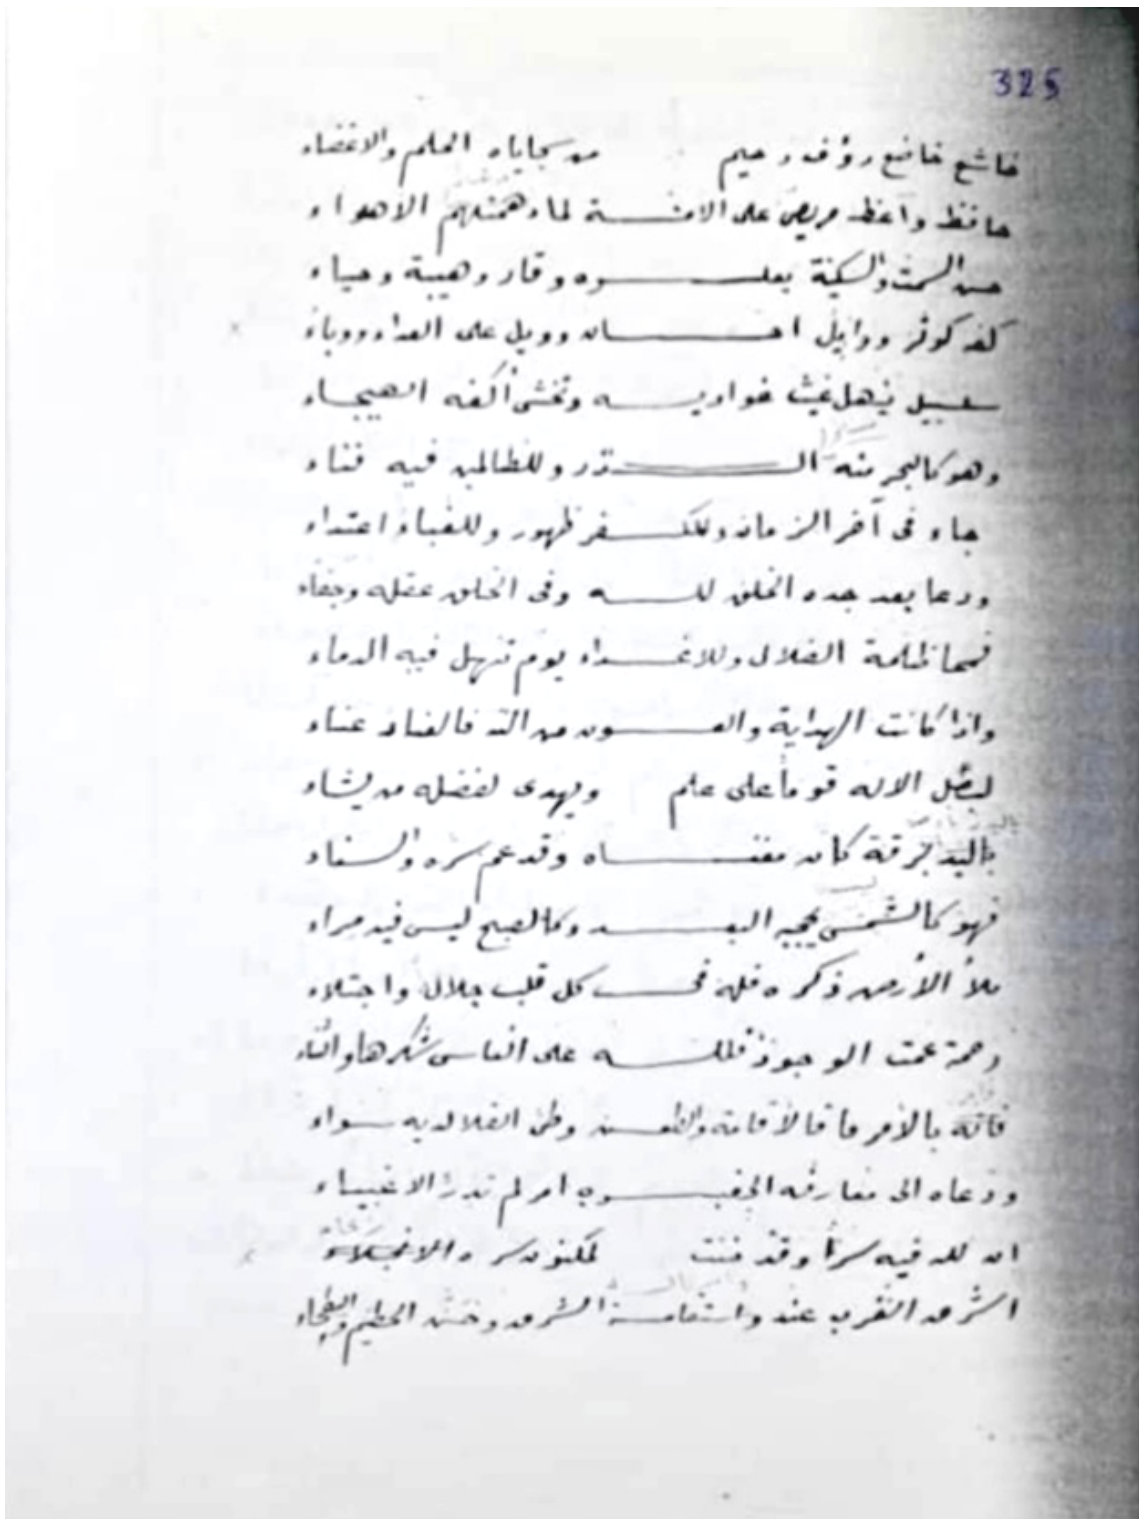 325
خاشع خاضع رؤف رحيم من سجاياه الحلم والاغضاء
حافظ واعظ حريص على الامـــة لما دهمتهم الأهواء
حسن السمت والسكينة يعلـــوه وقار وهيبة وحياء
كفه كوثر ووابل احـــسان وويل على العداء ووباء
سلسبيل ينهل غيث غواديـــه وتخشى أكفه الهيجاء
وهو كالبحر منه الـــدر وللظالمين فيه فناء
جاء فى آخر الزمان وللكـــفر ظهور وللغباء اعتداء
ودعا بعد جده الخلق للـــه وفى الخلق غفلة وجفاء
فمحا ظلمة الضلال وللاعـــداء يوم تنهل فيه الدماء
واذا كانت الهداية والعـــون من الله فالعناد عناء
ليضل الاله قوما على علم ويهدى لفضله من يشاء
برقة كان مغنـــاه وقد عم سره والسناء
فهو كالشمس البعـــد وكالصبح ليس فيه مراء
ملأ الأرض ذكره فله فـــى كل قلب جلال واجتلاء
رحمة عمت الوجود فللـــه على الناس شكرها والثناء
بالأمر فالأقامة والظعـــن وطئ الفلا لديه سواء
ودعاه الى مفارقه الجغبـــوب امر لم تدر الاغبياء
ان لله فيه سراً وقد لمكنون سره
اشرق الغرب عند واستقامـــة الشرق وحن الحطيم والبطحاء